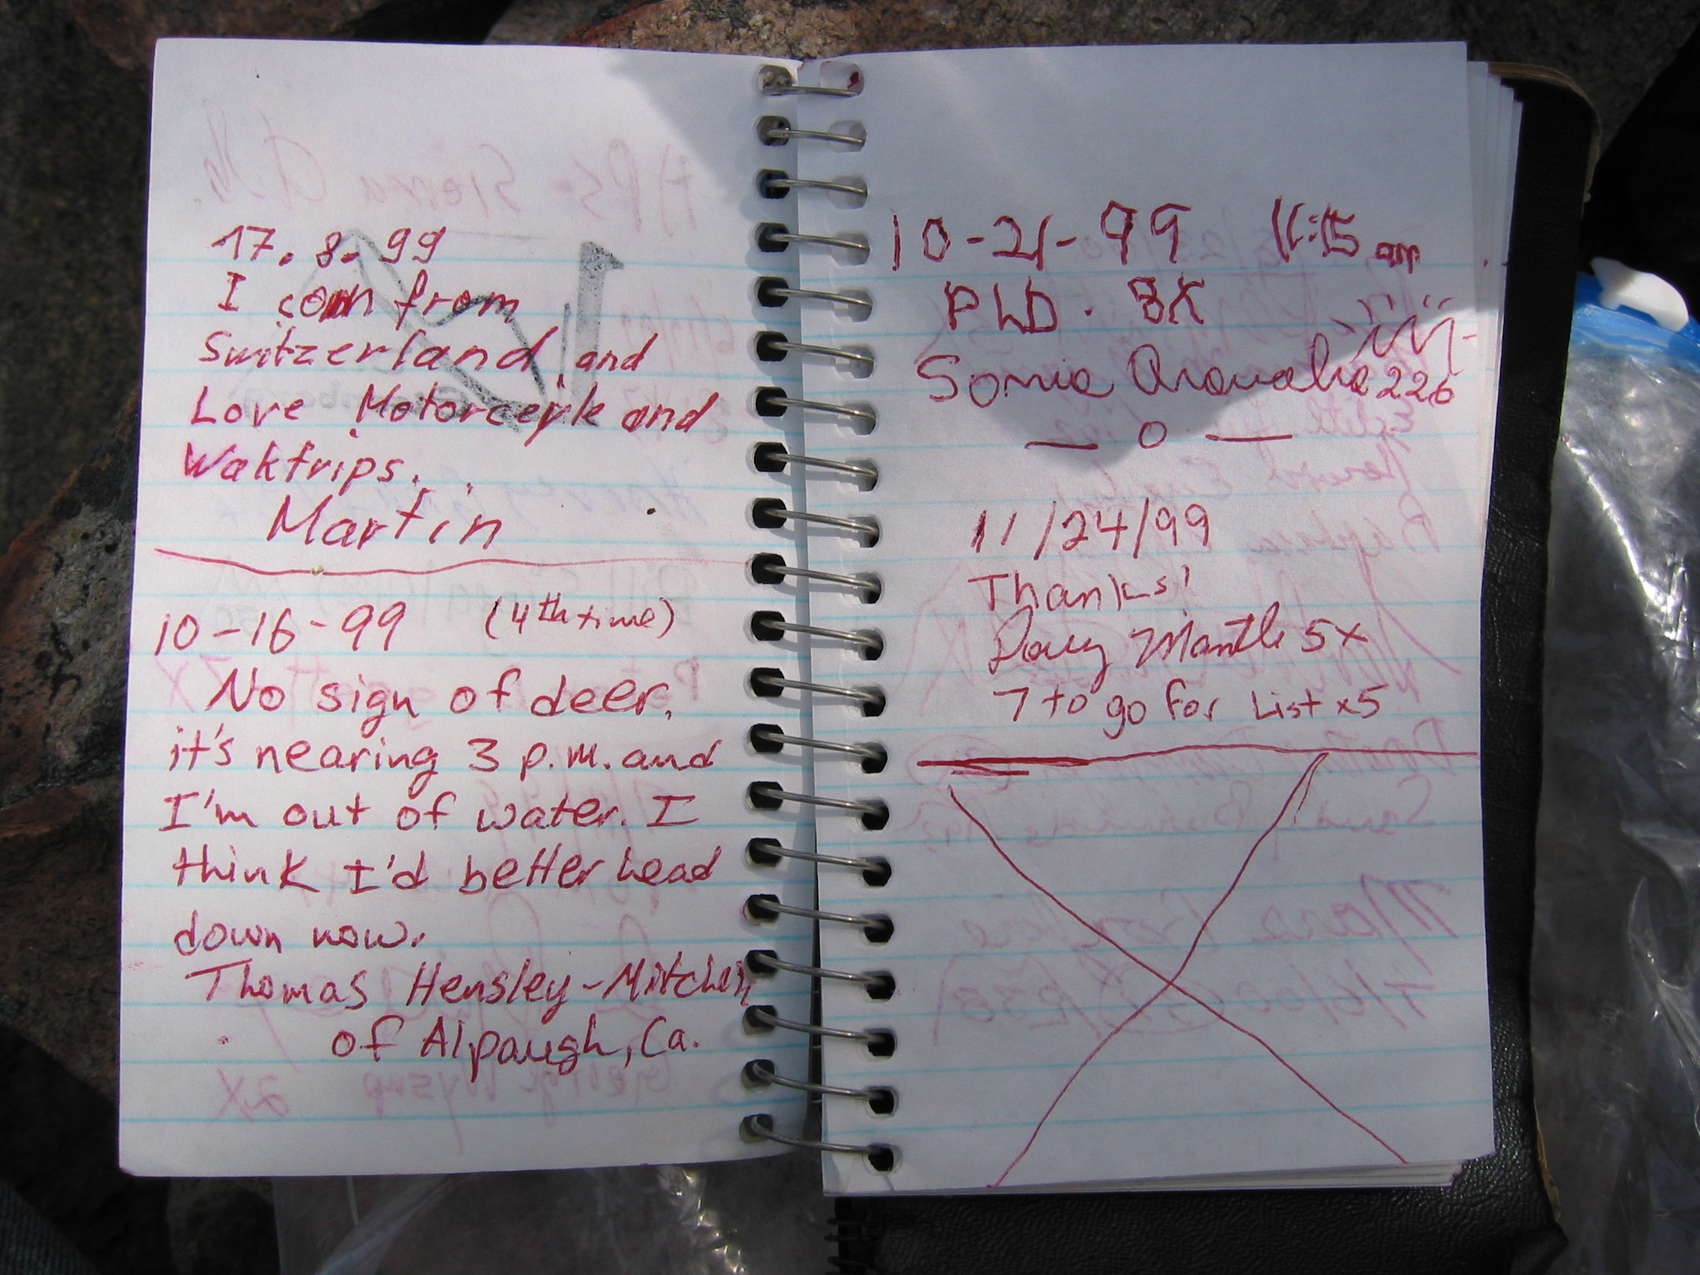 17. 8. 99
I com from
Switzerland and
Love Motorceyk and
Waktrips.
Martin
10-16-99 (4th time)
No sign of deer,
it's nearing 3 p.m. and
I'm out of water. I
think I'd better head
down now.
Thomas Hensley-Mitchell
of Alpaugh, Ca.
10-21-99 11:15 am
PLD. BK
Sonia
— 0 —
11/24/99
Thanks!
Doug Mantle 5x
7 to go for List x5